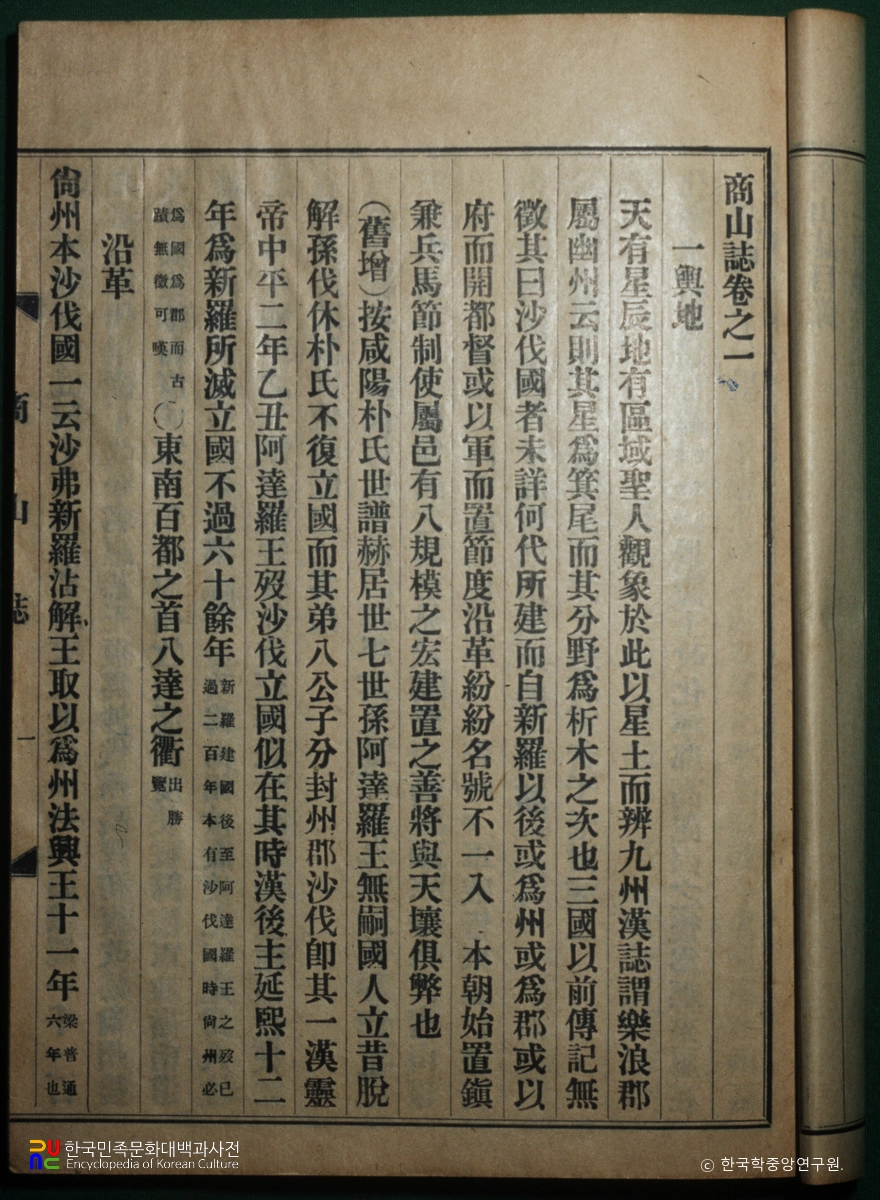 商山誌卷之一
一輿地
天有星辰地有區域聖人觀象於此以星土而辨九州漢誌謂樂浪郡
屬幽州云則其星爲箕尾而其分野爲析木之次也三國以前傳記無
徵其曰沙伐國者未詳何代所建而自新羅以後或爲州或爲郡或以
府而開都督或以軍而置節度沿革紛紛名號不一入 本朝始置鎭
兼兵馬節制使屬邑有八規模之宏建置之善將與天壤俱弊也
(舊增)按咸陽朴氏世譜赫居世七世孫阿達羅王無嗣國人立昔脫
解孫伐休朴氏不復立國而其弟八公子分封州郡沙伐卽其一漢靈
帝中平二年乙丑阿達羅王歿沙伐立國似在其時漢後主延熙十二
年爲新羅所滅立國不過六十餘年新羅建國後至阿達羅王之歿已過二百年本有沙伐國時尙州必
爲國爲郡而古蹟無徵可嘆〇東南百都之首八達之衢出勝覽
沿革
尙州本沙伐國一云沙弗新羅沾解王取以爲州法興王十一年梁普通六年也
商山誌
一
한국민족문화대백과사전
Encyclopedia of Korean Culture
© 한국학중앙연구원.